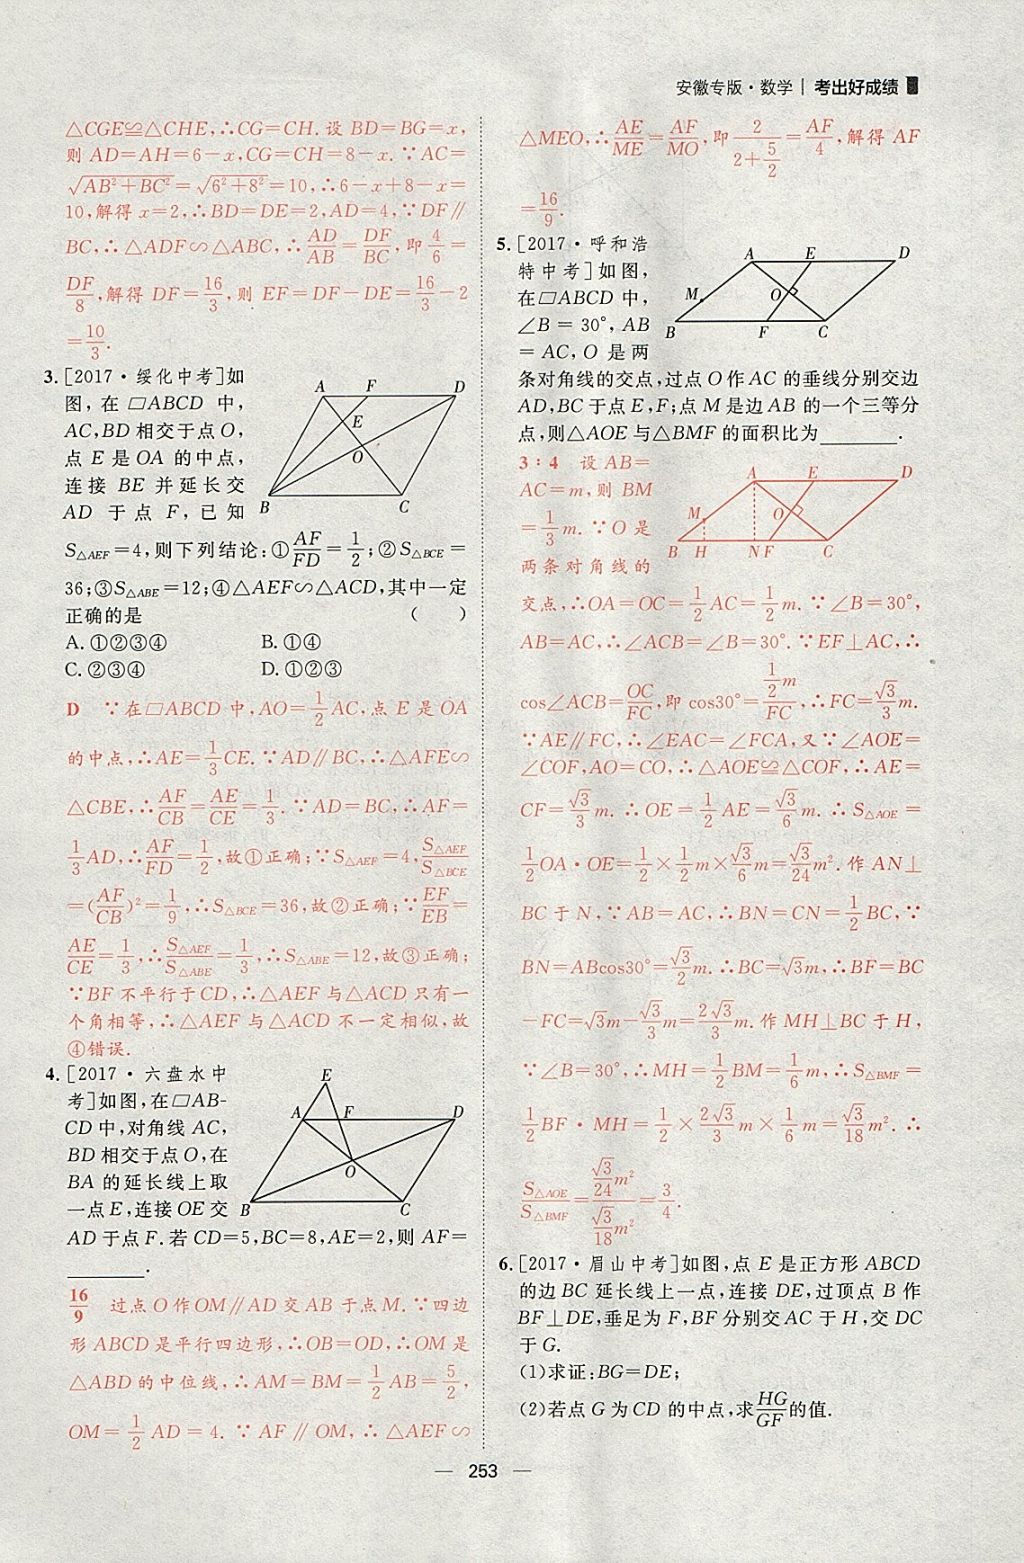 安徽专版·数学 | 考出好成绩
△CGE≌△CHE,∴CG=CH.设 BD=BG=x,
则 AD=AH=6-x,CG=CH=8-x.∵AC=
√(AB²+BC²)=√(6²+8²)=10,∴6-x+8-x=
10,解得 x=2,∴BD=DE=2,AD=4,∵DF∥
BC,∴△ADF∽△ABC,∴AD/AB=DF/BC,即4/6=
DF/8,解得 DF=16/3,则 EF=DF-DE=16/3-2
=10/3.
3.[2017·绥化中考]如
图,在▱ABCD 中,
AC,BD 相交于点 O,
点 E 是 OA 的中点,
连接 BE 并延长交
AD 于点 F,已知
A F D
E
O
B C
S△AEF=4,则下列结论:①AF/FD=1/2;②S△BCE=
36;③S△ABE=12;④△AEF∽△ACD,其中一定
正确的是 ( )
A.①②③④ B.①④
C.②③④ D.①②③
D ∵在▱ABCD 中,AO=1/2AC,点 E 是 OA
的中点,∴AE=1/3CE.∵AD∥BC,∴△AFE∽
△CBE,∴AF/CB=AE/CE=1/3.∵AD=BC,∴AF=
1/3AD,∴AF/FD=1/2,故①正确;∵S△AEF=4,S△AEF/S△BCE
=(AF/CB)²=1/9,∴S△BCE=36,故②正确;∵EF/EB=
AE/CE=1/3,∴S△AEF/S△ABE=1/3,∴S△ABE=12,故③正确;
∵BF 不平行于 CD,∴△AEF 与△ACD 只有一
个角相等,∴△AEF 与△ACD 不一定相似,故
④错误.
4.[2017·六盘水中
考]如图,在▱AB-
CD 中,对角线 AC,
BD 相交于点 O,在
BA 的延长线上取
一点 E,连接 OE 交
E
A F D
O
B C
AD 于点 F.若 CD=5,BC=8,AE=2,则 AF=
________.
16/9 过点 O 作 OM∥AD 交 AB 于点 M.∵四边
形 ABCD 是平行四边形,∴OB=OD,∴OM 是
△ABD 的中位线,∴AM=BM=1/2AB=5/2,
OM=1/2AD=4.∵AF∥OM,∴△AEF∽
△MEO,∴AE/ME=AF/MO,即2/(2+5/2)=AF/4,解得 AF
=16/9.
5.[2017·呼和浩
特中考]如图,
在▱ABCD 中,
∠B=30°,AB
=AC,O 是两
A E D
M O
B F C
条对角线的交点,过点 O 作 AC 的垂线分别交边
AD,BC 于点 E,F;点 M 是边 AB 的一个三等分
点,则△AOE 与△BMF 的面积比为________.
3:4 设 AB=
AC=m,则 BM
=1/3m.∵O 是
两条对角线的
A E D
M O
B H N F C
交点,∴OA=OC=1/2AC=1/2m.∵∠B=30°,
AB=AC,∴∠ACB=∠B=30°.∵EF⊥AC,∴
cos∠ACB=OC/FC,即 cos30°=(1/2m)/FC,∴FC=√3/3m.
∵AE∥FC,∴∠EAC=∠FCA,又∵∠AOE=
∠COF,AO=CO,∴△AOE≌△COF,∴AE=
CF=√3/3m.∴OE=1/2AE=√3/6m.∴S△AOE=
1/2OA·OE=1/2×1/2m×√3/6m=√3/24m².作 AN⊥
BC 于 N,∵AB=AC,∴BN=CN=1/2BC,∵
BN=ABcos30°=√3/2m.∴BC=√3m,∴BF=BC
-FC=√3m-√3/3m=2√3/3m.作 MH⊥BC 于 H,
∵∠B=30°,∴MH=1/2BM=1/6m,∴S△BMF=
1/2BF·MH=1/2×2√3/3m×1/6m=√3/18m².∴
S△AOE/S△BMF=(√3/24m²)/(√3/18m²)=3/4.
6.[2017·眉山中考]如图,点 E 是正方形 ABCD
的边 BC 延长线上一点,连接 DE,过顶点 B 作
BF⊥DE,垂足为 F,BF 分别交 AC 于 H,交 DC
于 G.
(1)求证:BG=DE;
(2)若点 G 为 CD 的中点,求HG/GF的值.
— 253 —